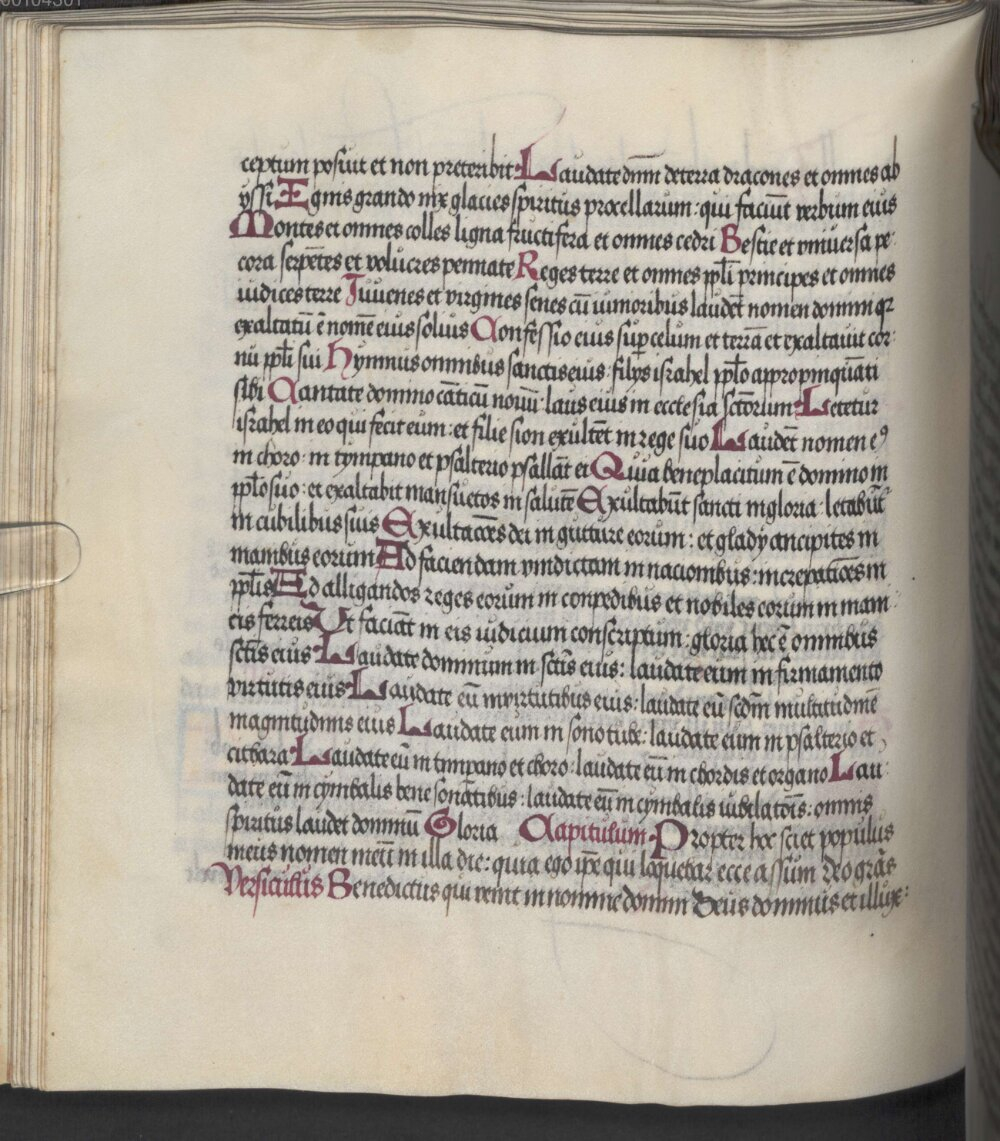 ceptum posiut et non preteribit Laudate dnm de terra dracones et omnes ab
yssi Ignis grando nix glacies spiritus procellarum: qui faciut verbum eius
Montes et omnes colles ligna fructifera et omnes cedri Bestie et vniuersa pe
cora serpetes et volucres pennate Reges terre et omnes ppli principes et omnes
iudices terre Iuuenes et virgines senes cu iunioribus laudet nomen domini qr
exaltatu e nome eius solius Confessio eius sup celum et terra et exaltauit cor
nu ppli sui hymnus omnibus sanctis eius filijs israhel pplo appropinquati
sibi Cantate domino canticu nouu: laus eius in ecclesia sctorum Letetur
israhel in eo qui fecit eum: et filie sion exultet in rege suo Laudet nomen e9
in choro: in tympano et psalterio psallat ei Quia beneplacitum e domino in
pplo suo: et exaltabit mansuetos in salute Exultabut sancti in gloria: letabut
in cubilibus suis Exultacoes dei in gutture eorum: et gladij ancipites in
manibus eorum Ad faciendam vindictam in nacionibus: increpatioes in
pplis Ad alligandos reges eorum in conpedibus et nobiles eorum in mani
cis ferreis Vt faciat in eis iudicium conscriptum: gloria hec e omnibus
sctis eius Laudate dominum in sctis eius: laudate eum in firmamento
virtutis eius Laudate eu in virtutibus eius: laudate eu scdm multitudine
magnitudinis eius Laudate eum in sono tube: laudate eum in psalterio et
cithara Laudate eu in timpano et choro: laudate eu in chordis et organo Lau
date eu in cymbalis bene sonatibus: laudate eu in cymbalis iubilatois: omnis
spiritus laudet dominu Gloria Capitulum Propter hoc sciet populus
meus nomen meu in illa die: quia ego ipe qui loquebar ecce assum Deo gras
Versiculus Benedictus qui venit in nomine domini Deus dominus et illuxe: